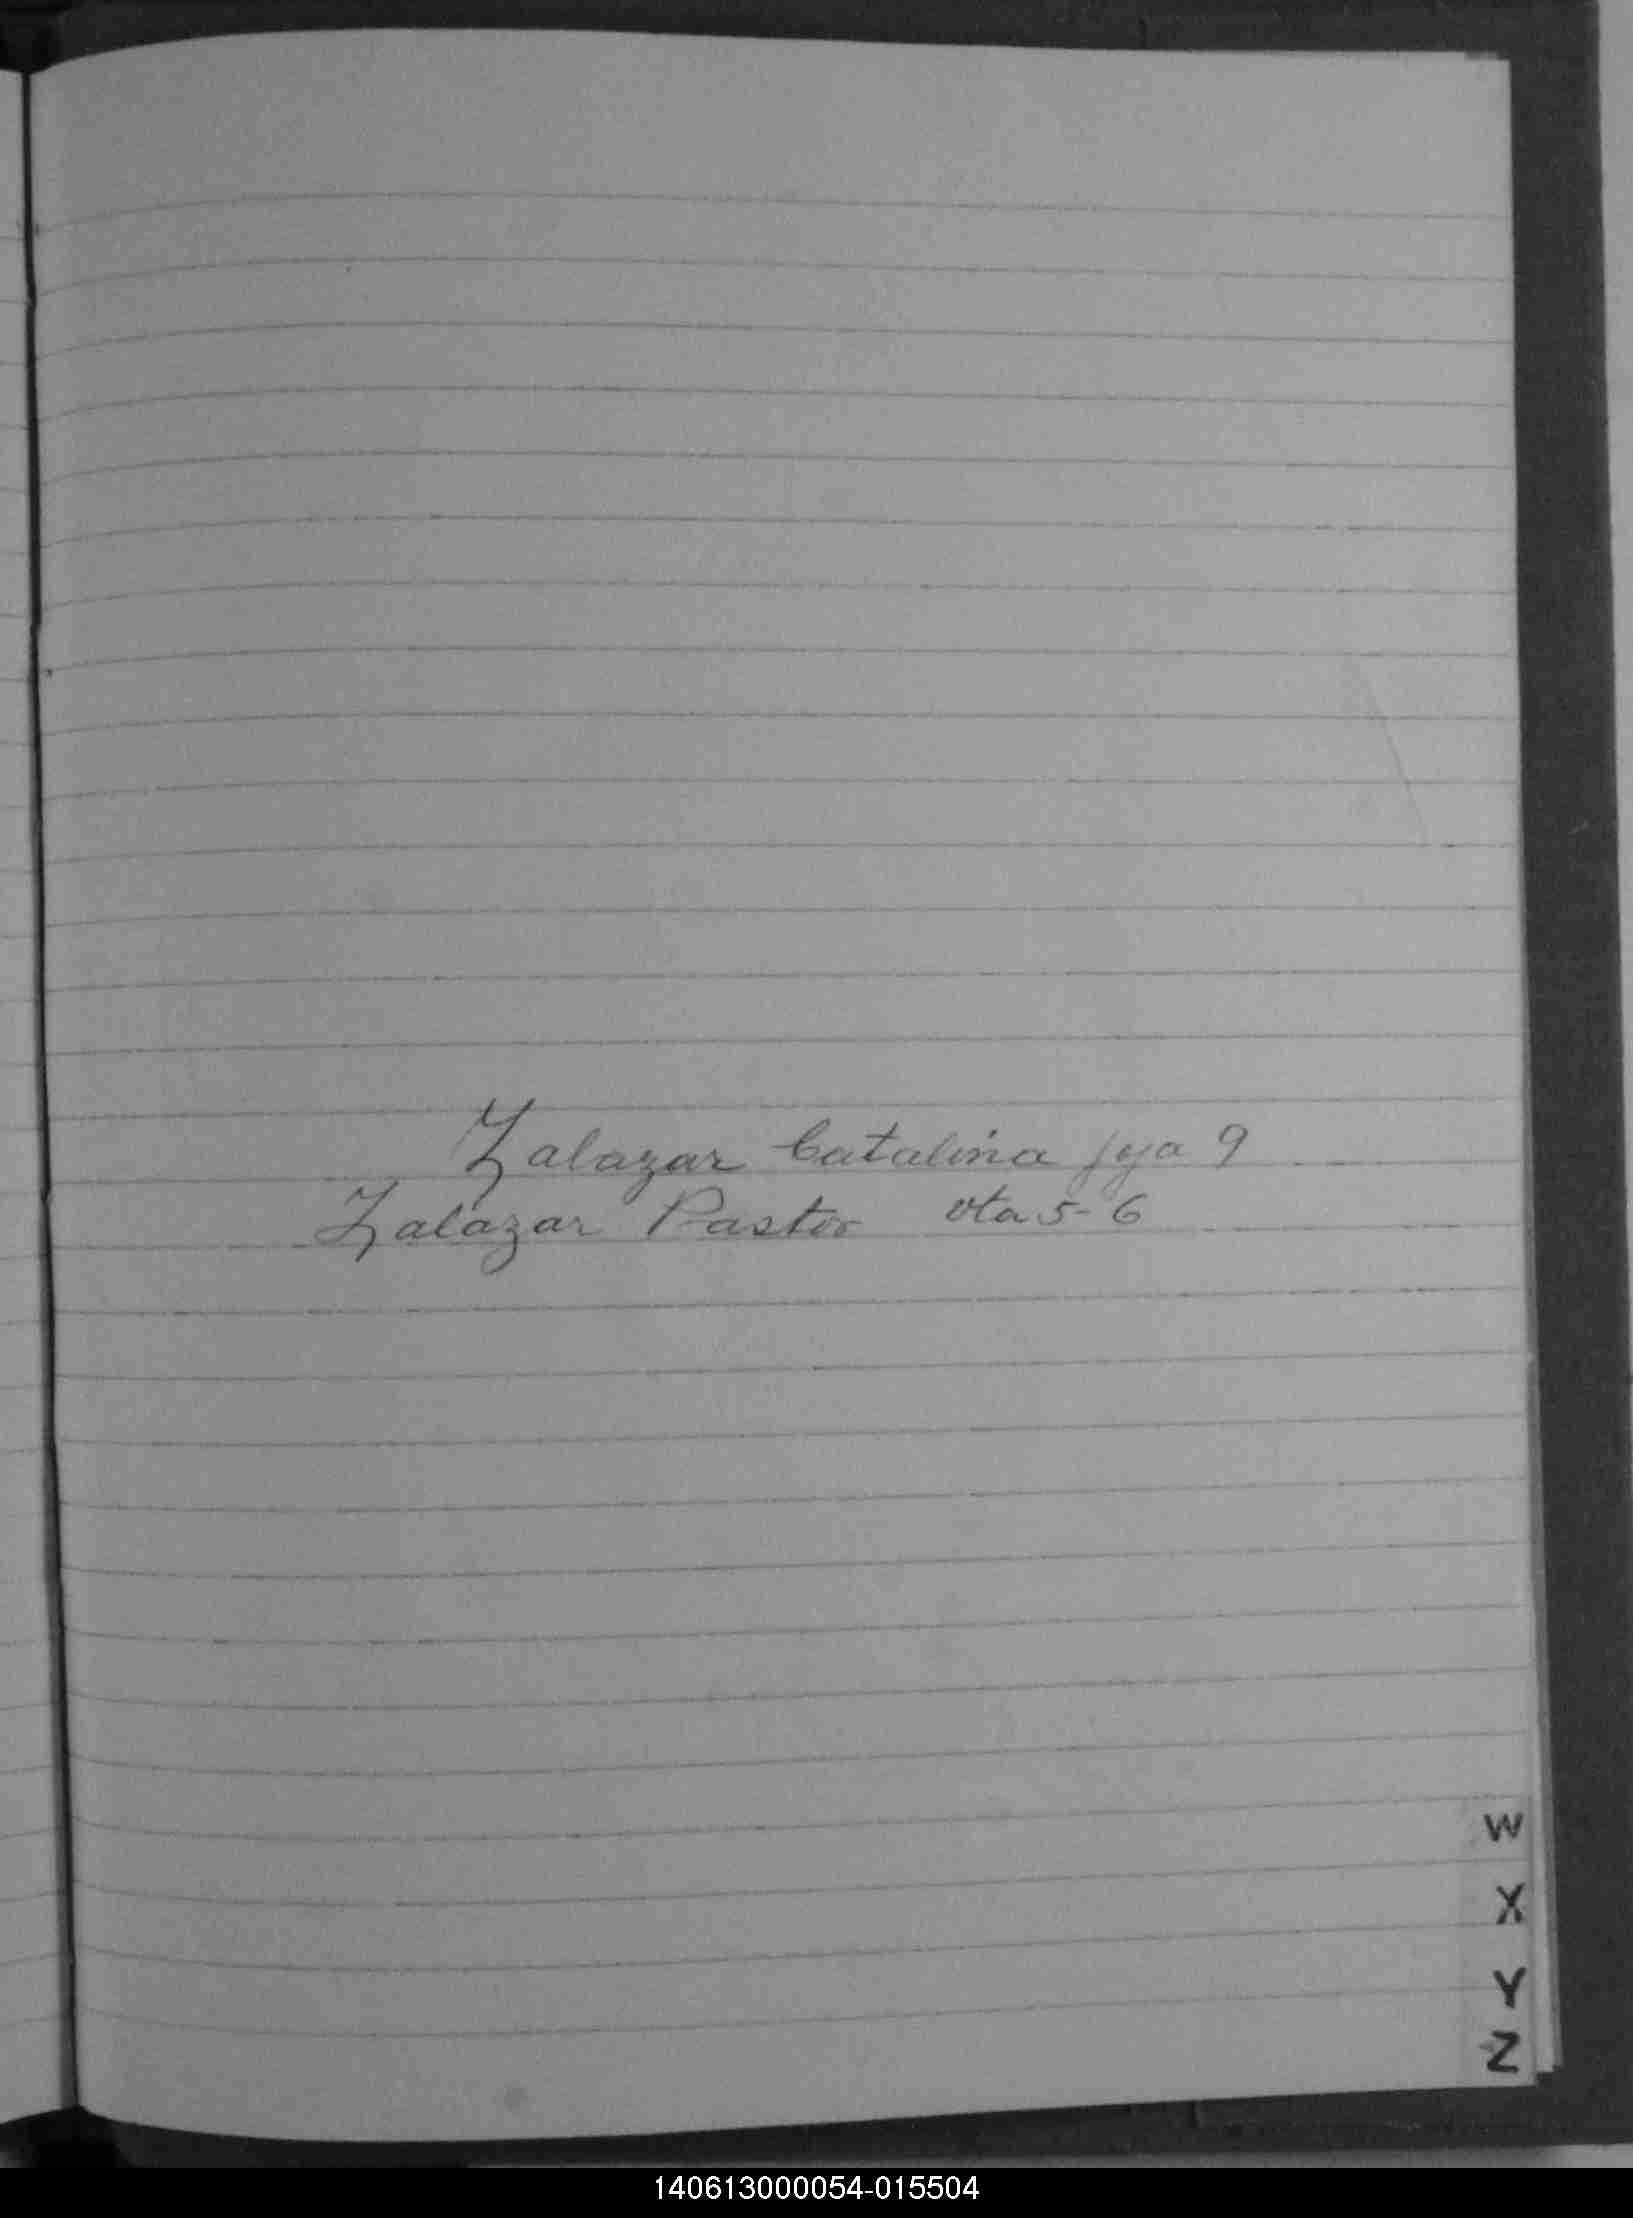 Zalazar Catalina foja 9
Zalazar Pastor vta 5-6
W
X
Y
Z
140613000054-015504